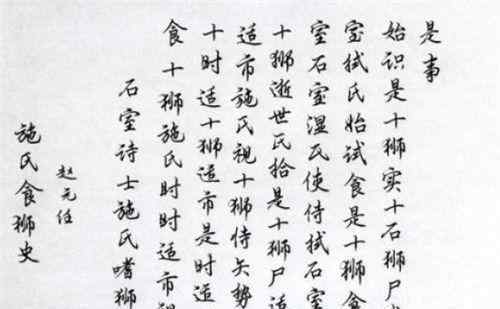 施氏食狮史
赵元任
石室诗士施氏嗜狮
食十狮施氏时时适市视
十时适十狮适市是时适
适市施氏视十狮恃矢势
十狮逝世氏拾是十狮尸适
室石室湿氏使侍拭石室
室拭氏始试食是十狮食
始识是十狮实十石狮尸
是事